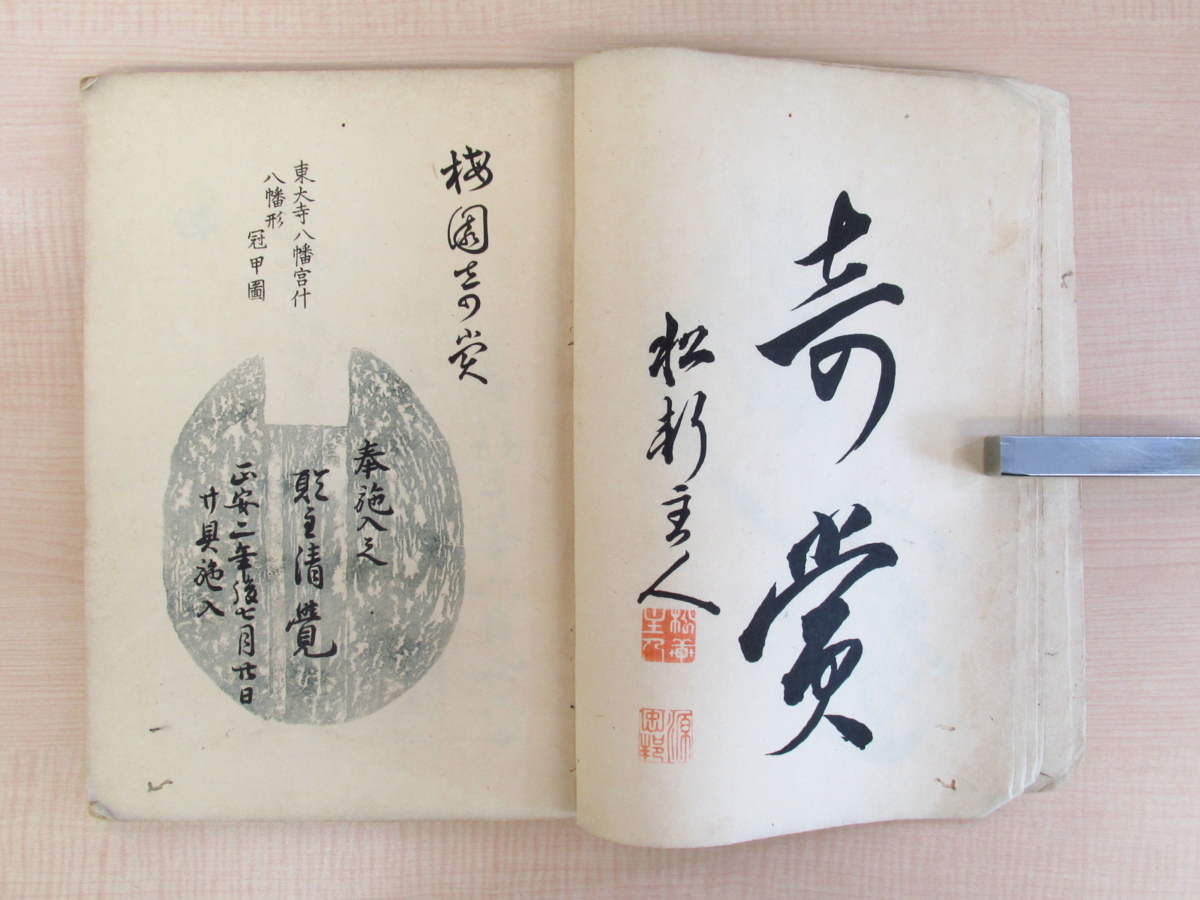 奇賞
松軒主人
源忠邦
梅園奇賞
東大寺八幡宮什
八幡形
冠甲圖
奉施入之
願主清覺
正安二年後七月廿日
廿具施入